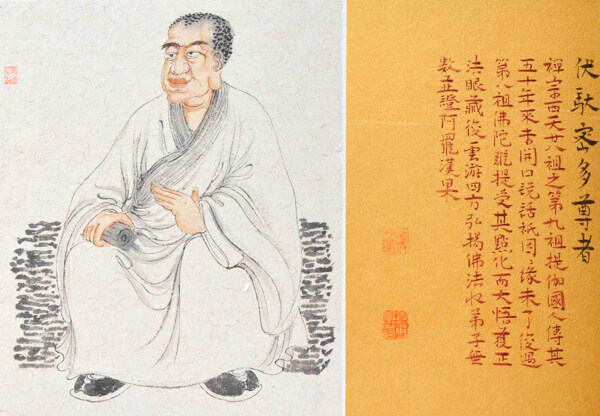 伏馱密多尊者
禪宗西天廿八祖之第九祖提伽國人傳其
五十年來未開口說話祇因〻緣未了後遇
第八祖佛陀難提受其點化而大悟獲正
法眼藏後雲游四方弘揚佛法收弟子無
数並證阿羅漢果